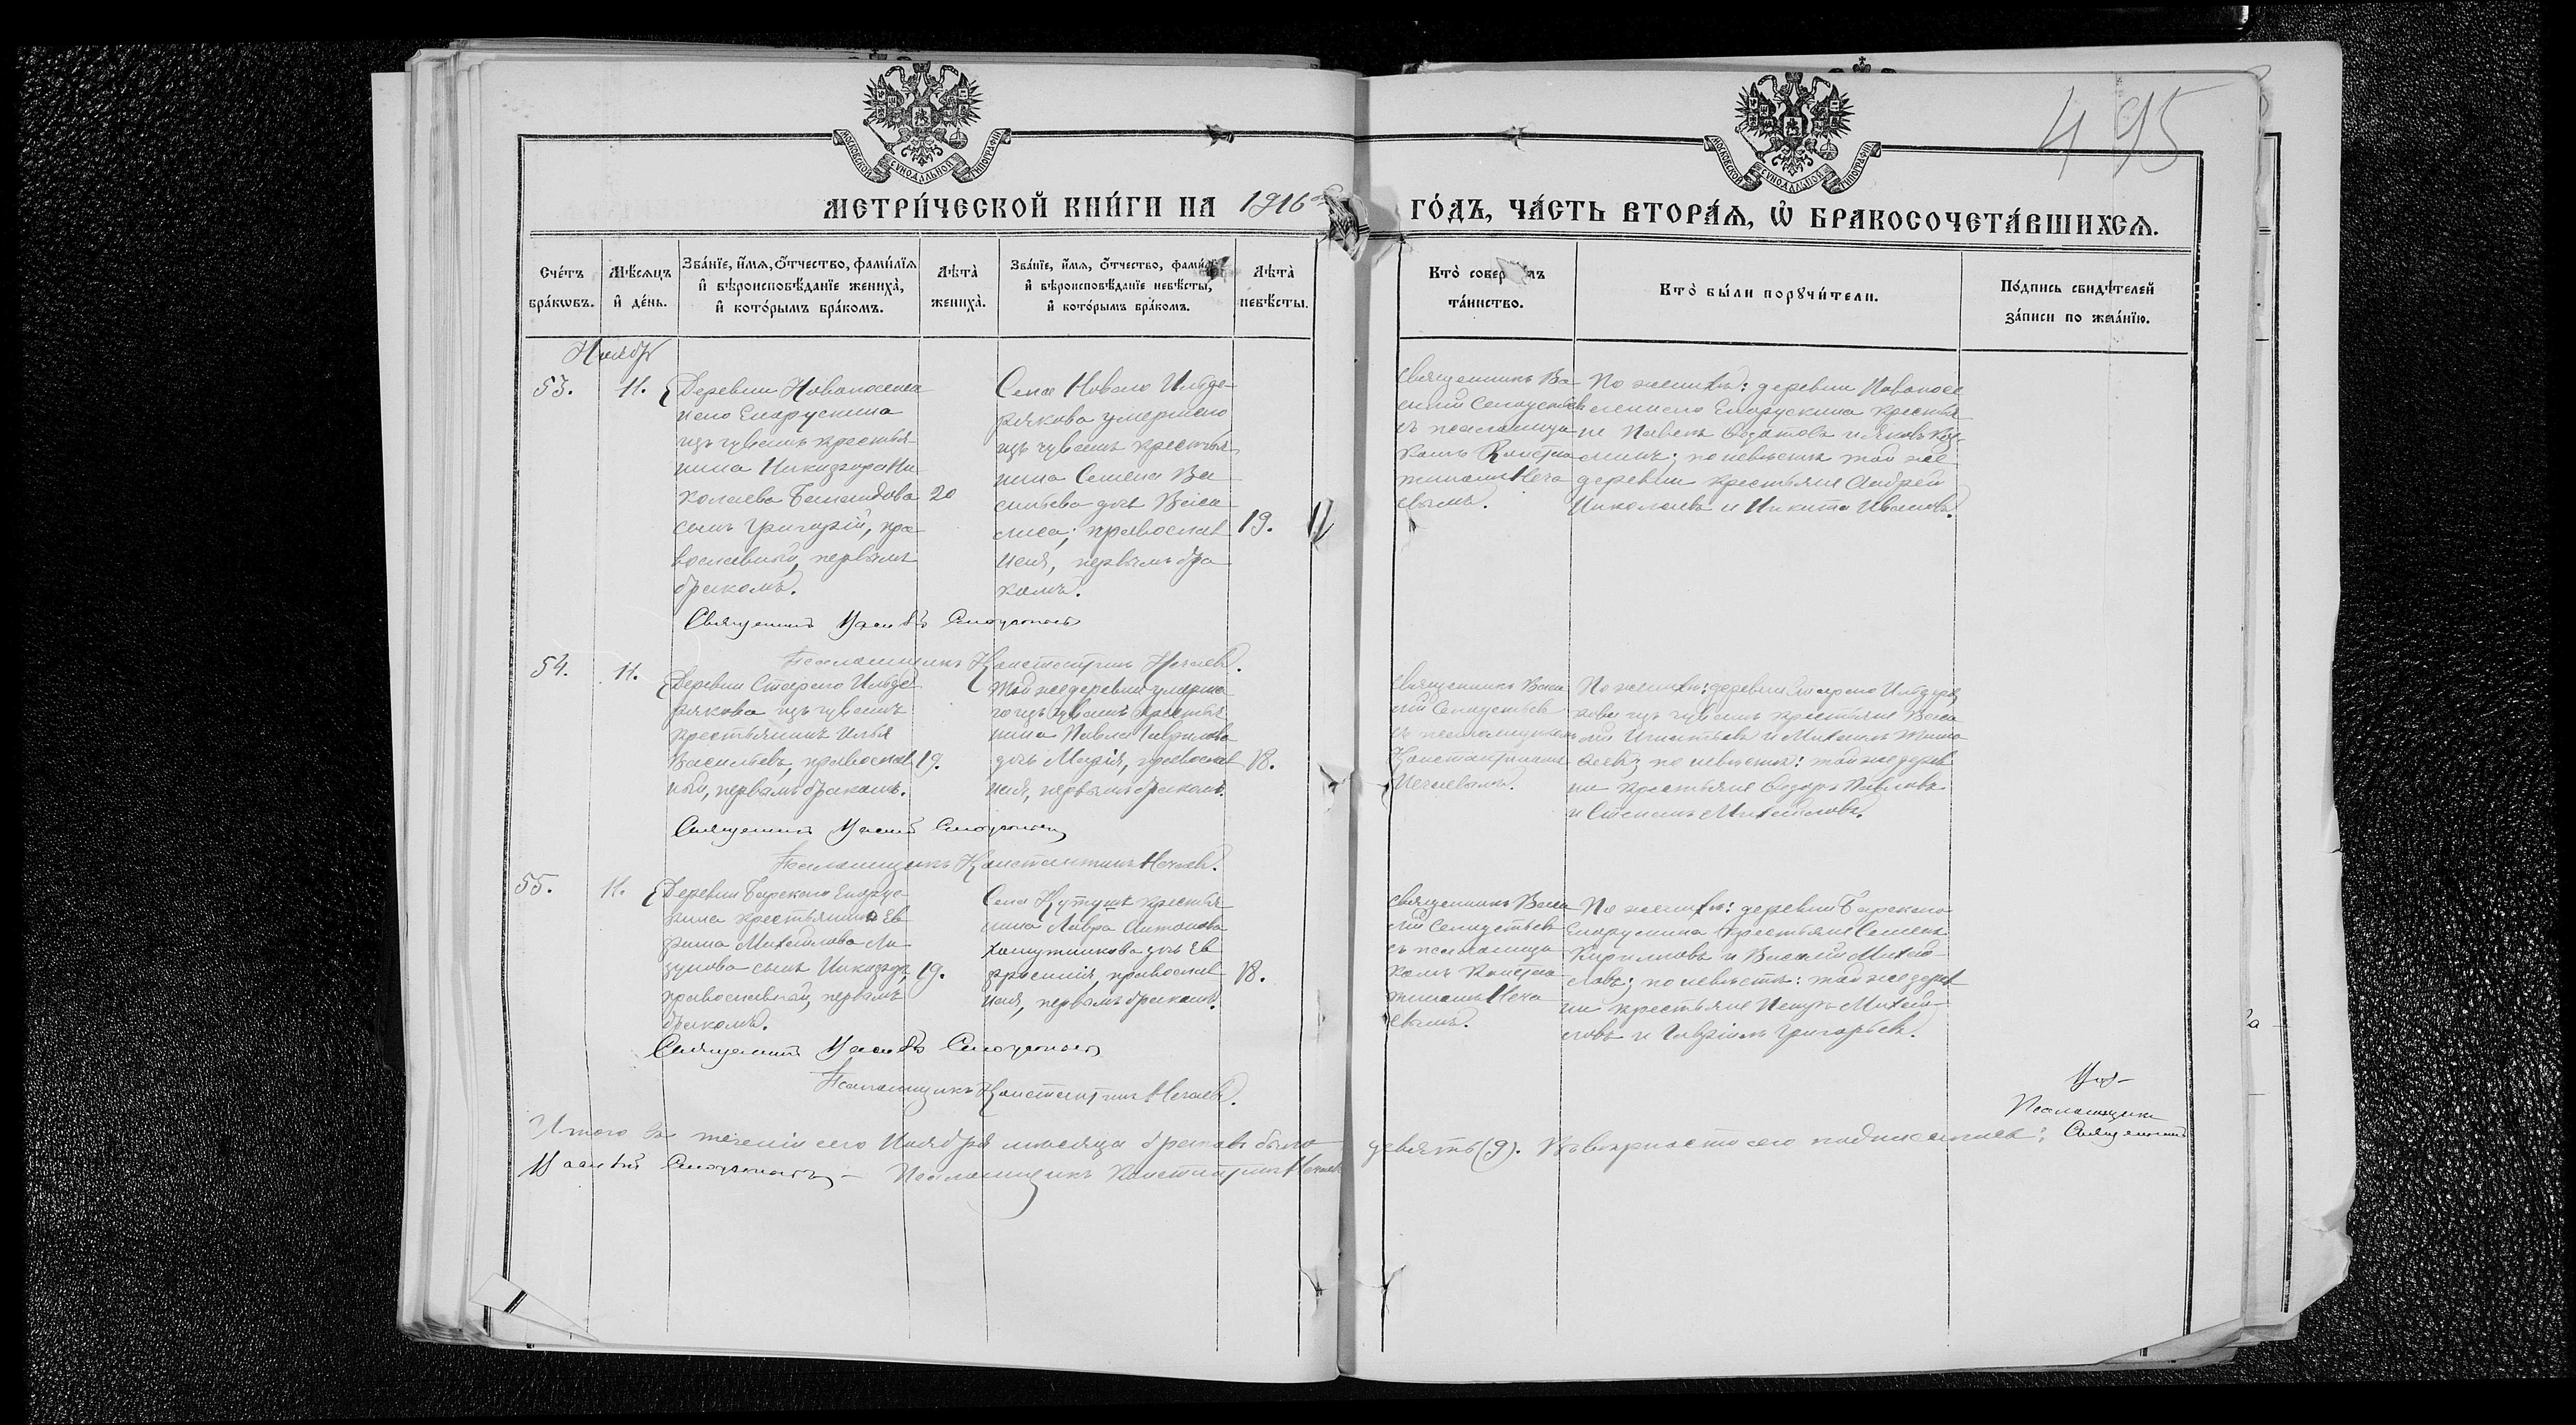 495
МОСКОВСКОЙ СѴНОДАЛЬНОЙ ТИПОГРАФІИ
МОСКОВСКОЙ СѴНОДАЛЬНОЙ ТИПОГРАФІИ
МЕТРИ́ЧЕСКОЙ КНИ́ГИ НА 1916 ГО́ДЪ, ЧА́СТЬ ВТОРА́Я, Ѡ҆ БРАКОСОЧЕТА́ВШИХСѦ.
Сче́тъ бра́кѡвъ.
Мѣ́сяцъ и҆ де́нь.
Зва́нїе, и҆́мѧ, ѻ҆́тчество, фами́лїѧ
и҆ вѣроисповѣ́данїе жениха̀,
и҆ кото́рымъ бра́комъ.
Лѣта̀ жениха̀.
Зва́нїе, и҆́мѧ, ѻ҆́тчество,
и҆ вѣроисповѣ́данїе невѣ́сты,
и҆ кото́рымъ бра́комъ.
Лѣта̀ невѣ́сты.
Кто̀
та́инство.
Кто̀ бы́ли порꙋчи́тели.
По́дпись свидѣ́телей
за́писи по жела́нїю.
Ноябрь
53.
11.
Деревни Новопоселен
наго Елаурускина
изъ чувашъ крестья
нина Никифора Ни
колаева
сынъ Григорій, пра
вославный, первымъ
бракомъ.
20
Села Новаго Ильде
рякова умершаго
изъ чувашъ крестья
нина Семена Ва
сильева дочь Васи
лиса, православ
ная, первымъ бра
комъ.
19.
Священникъ Ва
силій
съ псаломщи
комъ Конста
тиномъ Неча
евымъ.
По женихѣ: деревни Новопосе
леннаго Елаурускина крестья
не Павелъ Ѳедотовъ и Яковъ Коз
минъ; по невѣстѣ той же
деревни крестьяне Андрей
Николаевъ и Никита Ивановъ.
Священникъ Василій
Псаломщикъ Константинъ Нечаевъ.
54.
11.
Деревни Стараго Ильде
рякова изъ чувашъ
крестьянинъ Илья
Васильевъ, православ
ный, первымъ бракомъ.
19.
Той же деревни умерша
го изъ чувашъ крестья
нина Павла Гаврилова
дочь Марія, православ
ная, первымъ бракомъ.
18.
Священникъ Васи
лій
съ псаломщикомъ
Константиномъ
Нечаевымъ.
По женихѣ: деревни Стараго Ильдеря
кова изъ чувашъ крестьяне Васи
лій Игнатьевъ и Михаилъ Тимо
ѳеевъ; по невѣстѣ: той же дерев
ни крестьяне Ѳедоръ Павловъ
и Степанъ Михайловъ.
Священникъ Василій
Псаломщикъ Константинъ Нечаевъ.
55.
11.
Деревни Барскаго Енорус
кина крестьянина Еф
рима Михайлова
сынъ Никифоръ,
православный, первымъ
бракомъ.
19.
Села Кутушъ крестья
нина Лавра Антонова
Хомутникова дочь Ев
фросинія, православ
ная, первымъ бракомъ.
18.
Священникъ Васи
лій
съ псаломщи
комъ Конста
тиномъ Неча
евымъ.
По женихѣ: деревни Барскаго
Енорускина крестьяне Семенъ
Кириловъ и Василій Михай
ловъ; по невѣстѣ: той же дерев
ни крестьяне Петръ Михай
ловъ и Гавріилъ Григорьевъ.
Священникъ Василій
Псаломщикъ Константинъ Нечаевъ.
Псаломщикъ
Итого въ теченіи сего Ноября мѣсяца браковъ было девять (9). Въ вѣрности сего подписались: Священникъ
Василій Псаломщикъ Константинъ Нечаевъ